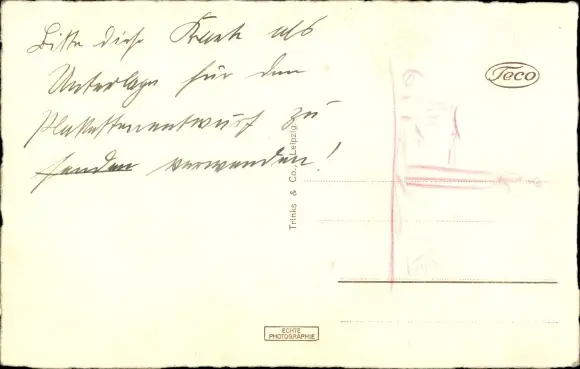 Bitte diese Karte als
Unterlage für den
Plakettenentwurf zu
senden verwenden!
Teco
Trinks & Co., Leipzig.
ECHTE
PHOTOGRAPHIE